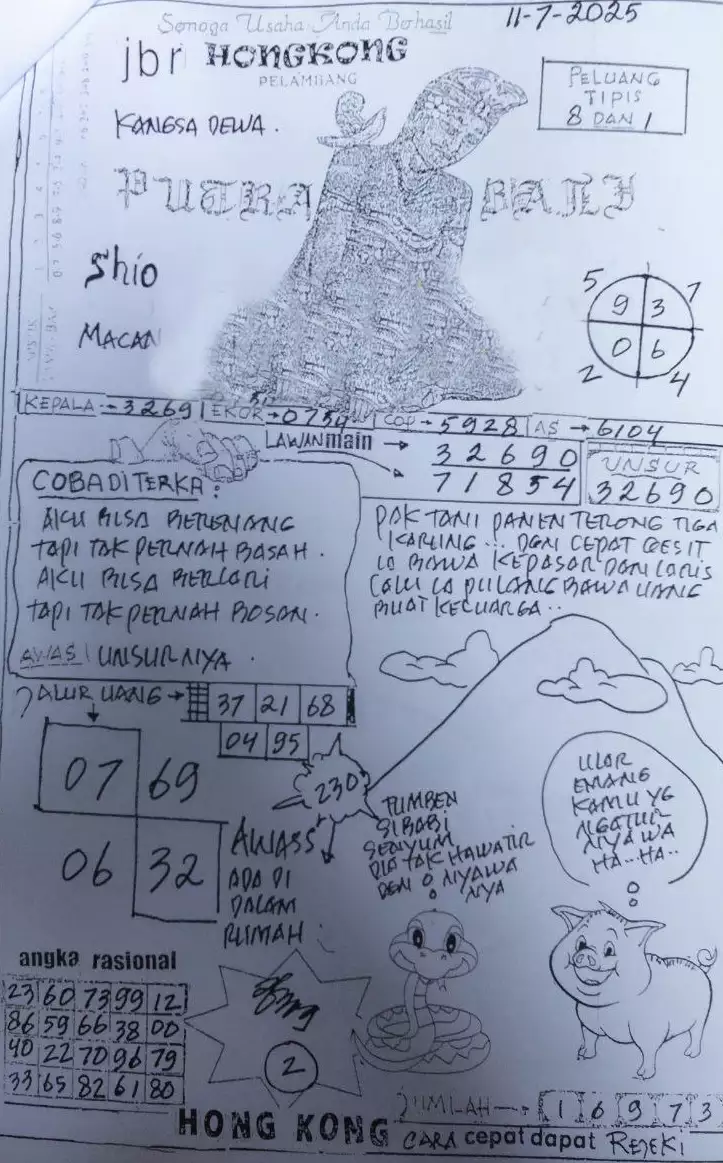 Semoga Usaha Anda Berhasil
11-7-2025
jbr HONGKONG
PELAMBANG
PELUANG
TIPIS
8 DAN 1
KANGSA DEWA.
PUTRA BALI
Shio
MACAN
5 7
9 3
0 6
2 4
KEPALA → 3269 EKOR → 0754 COP → 5928 AS → 6104
LAWAN main → 32690
71854
UNSUR
32690
COBA DITERKA:
AKU BISA BERENANG
TAPI TAK PERNAH BASAH.
AKU BISA BERLARI
TAPI TAK PERNAH BOSAN.
AWAS! UNSURNYA.
PAK TANI PANEN TERONG TIGA
KARUNG... DGN CEPAT GESIT
IA BAWA KEPASAR DAN LARIS
LALU IA PULANG BAWA UANG
BUAT KELUARGA..
JALUR UANG → 37 21 68
04 95
07 69
06 32
230
AWASS
ADA DI
DALAM
RUMAH
TUMBEN
SI BABI
SENYUM
DIA TAK HAWATIR
DGN NYAWA
NYA
ULAR
EMANG
KAMU YG
NGATUR
NYAWA
HA..HA..
angka rasional
23 60 73 99 12
86 59 66 38 00
40 22 70 96 79
33 65 82 61 80
2
JUMLAH → 1 6 9 7 3
HONG KONG CARA cepat dapat REJEKI